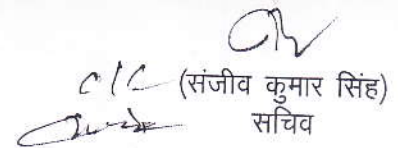 C/C (संजीव कुमार सिंह)
सचिव